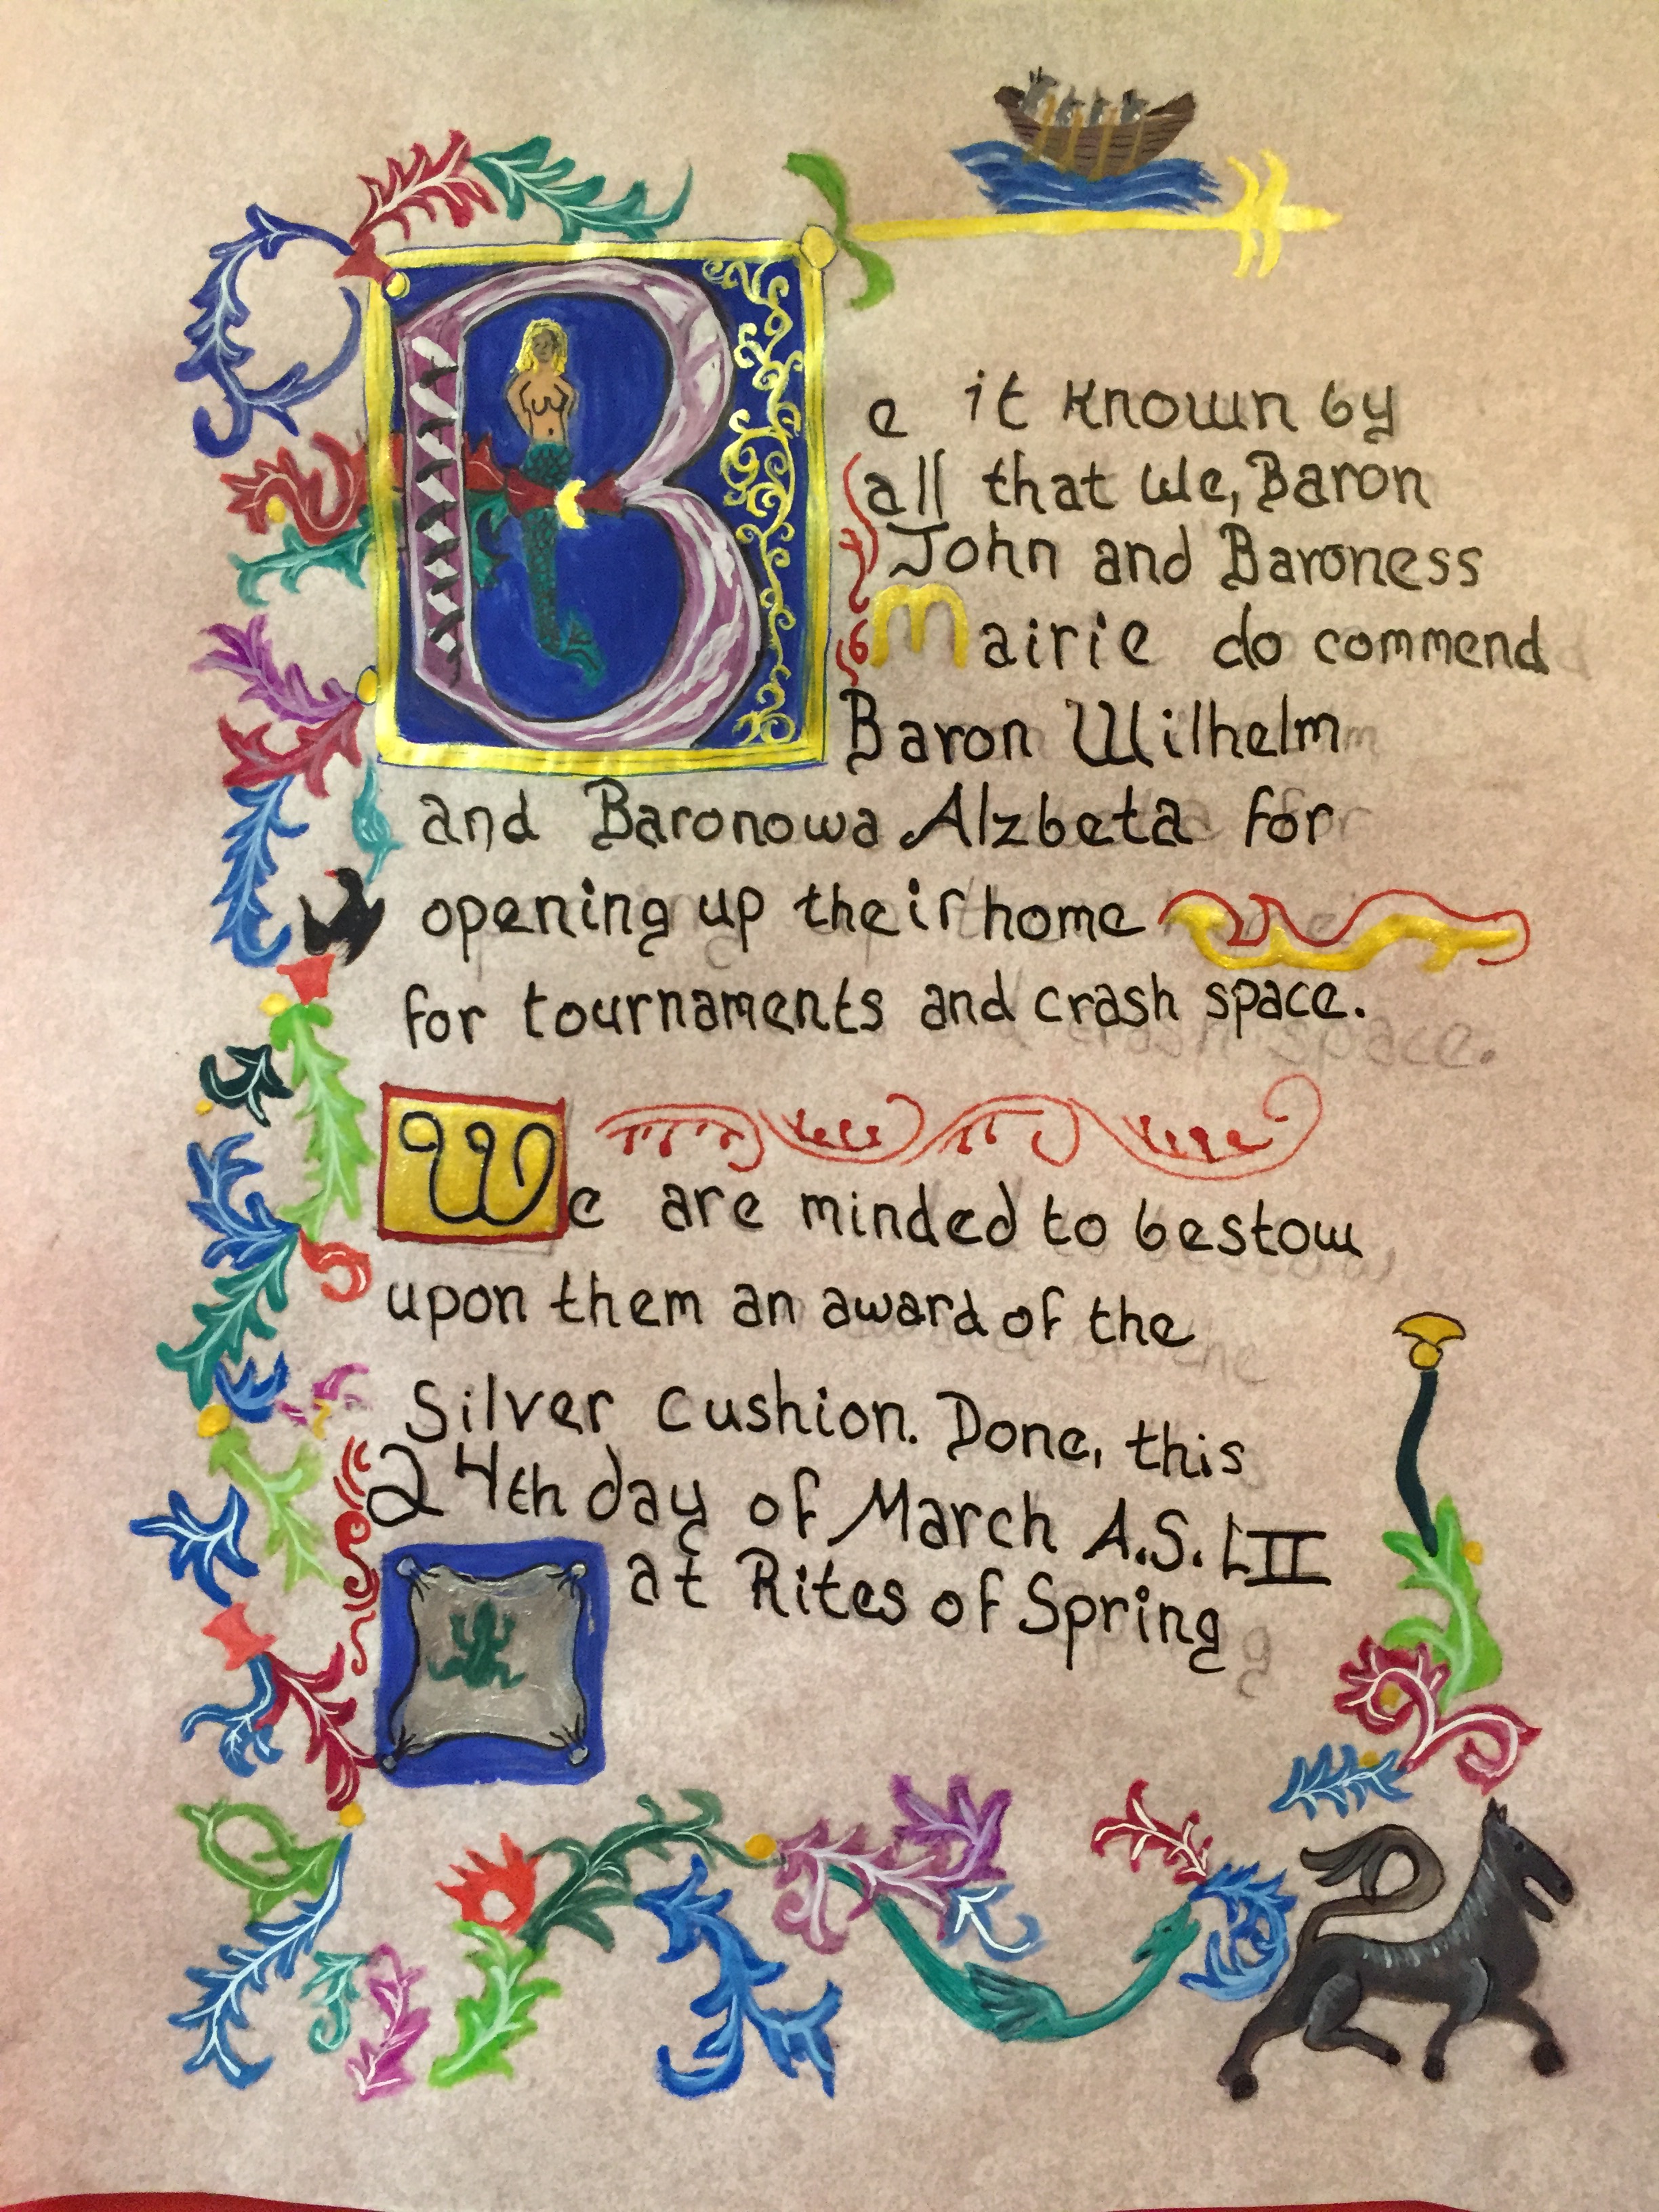 Be it known by
all that We, Baron
John and Baroness
Mairie do commend
Baron Wilhelm
and Baronowa Alzbeta for
opening up their home
for tournaments and crash space.
We are minded to bestow
upon them an award of the
Silver Cushion. Done, this
24th day of March A.S. LII
at Rites of Spring